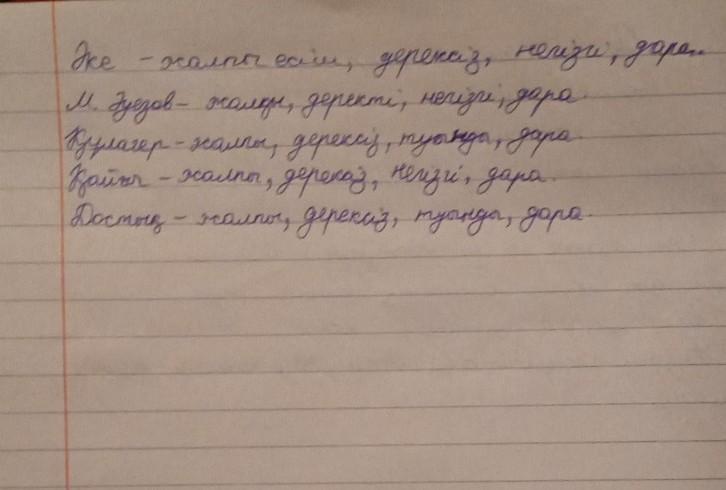 Әке - жалпы есім, дерексіз, негізгі, дара.
М. Әуезов - жалқы, деректі, негізгі, дара.
Құлагер - жалпы, дерексіз, туынды, дара.
Қайғы - жалпы, дерексіз, негізгі, дара.
Достық - жалпы, дерексіз, туынды, дара.